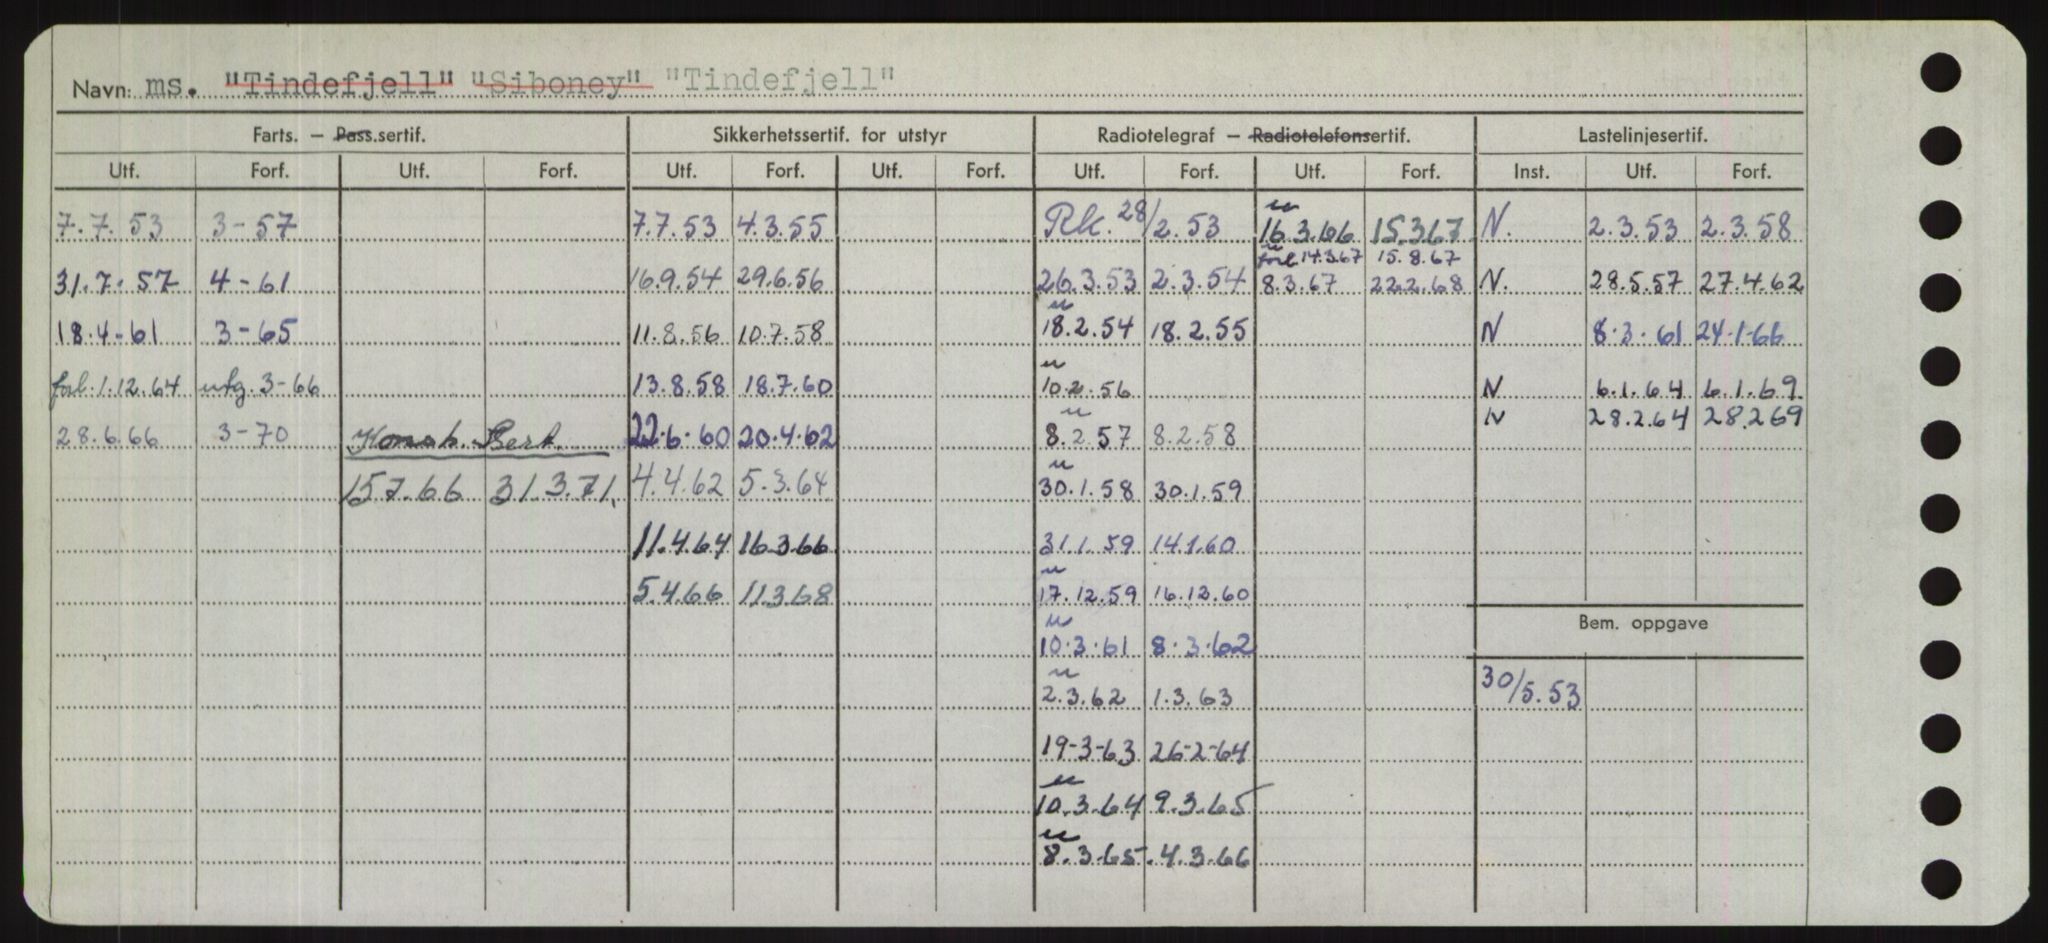 Navn: ms. "Tindefjell" "Siboney" "Tindefjell"
Farts. – Pass.sertif. Sikkerhetssertif. for utstyr Radiotelegraf – Radiotelefonsertif. Lastelinjesertif.
Utf. Forf. Utf. Forf. Utf. Forf. Utf. Forf. Utf. Forf. Utf. Forf. Inst. Utf. Forf.
7.7.53 3-57 7.7.53 4.3.55 Rk. 28/2.53 16.3.66 15.3.67 N. 2.3.53 2.3.58
forl. 14.3.67 15.8.67
31.7.57 4-61 16.9.54 29.6.56 26.3.53 2.3.54 8.3.67 22.2.68 N. 28.5.57 27.4.62
18.4-61 3-65 11.8.56 10.7.58 18.2.54 18.2.55 N 8.3.61 24.1-66
forl. 1.12.64 utg. 3-66 13.8.58 18.7.60 10.2.56 N 6.1.64 6.1.69
N 28.2.64 28.269
28.6.66 3-70 22.6.60 20.4.62 8.2.57 8.2.58
157.66 31.3.71. 4.4.62 5.3.64 30.1.58 30.1.59
11.4.64 16366 31.1.59 14.1.60
5.4.66 11368 17.12.59 16.12.60
Bem. oppgave
10.3.61 8.3.62
2.3.62 1.3.63 30/5.53
19-3-63 26-2-64
10.3.64 9.3.65
8.3.65. 4.3.66